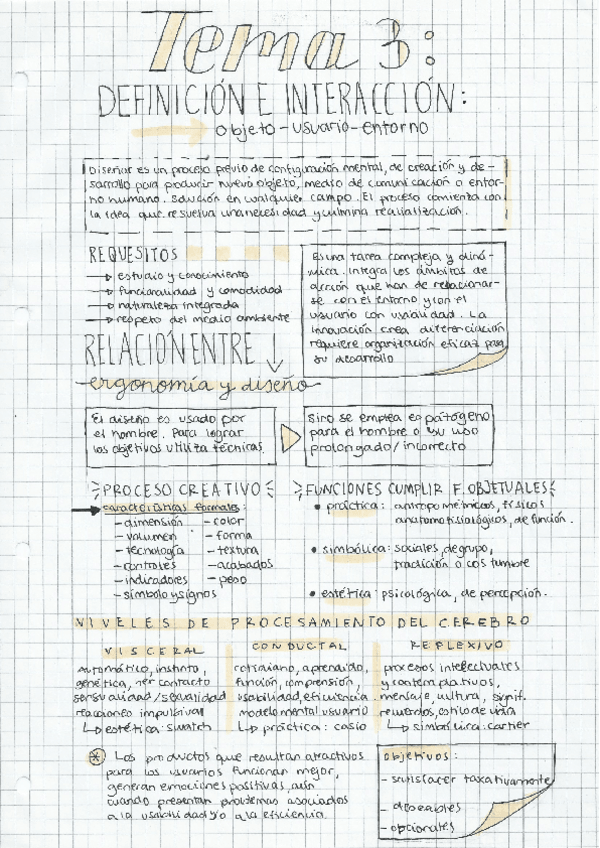 Tema 3:
DEFINICIÓN E INTERACCIÓN:
objeto-usuario-entorno
Diseñar es un proceso previo de configuración mental, de creación y de-
sarrollo para producir nuevo objeto, medio de comunicación o entor-
no humano. Solución en cualquier campo. El proceso comienza con
la idea que resuelva una necesidad y culmina realialización.
REQUESITOS
→ estudio y conocimiento
→ funcionalidad y comodidad
→ naturaleza integrada
→ respeto del medio ambiente
Es una tarea compleja y diná-
mica. Integra los ámbitos de
acción que han de relacionar-
se con el entorno y con el
usuario con usabilidad. La
innovación crea diferenciación
requiere organización eficaz para
su desarrollo
RELACIÓN ENTRE
ergonomía y diseño
El diseño es usado por
el hombre. Para lograr
los objetivos utiliza técnicas.
Si no se emplea es patógeno
para el hombre o su uso
prolongado/incorrecto
PROCESO CREATIVO
características formales:
- dimensión - color
- volumen - forma
- tecnología - textura
- controles - acabados
- indicadores - peso
- símbolo y signos
FUNCIONES CUMPLIR F.OBJETUALES
• práctica: antropométricos, físicos
anatomofisiológicos, de función.
• simbólica: sociales, de grupo,
tradición o costumbre
• estética: psicológica, de percepción.
NIVELES DE PROCESAMIENTO DEL CEREBRO
VISCERAL
automático, instinto,
genética, 1er contacto
sensualidad/sexualidad
reacciones impulsivas
↳ estética: swatch
CONDUCTAL
cotidiano, aprendido,
función, comprensión,
usabilidad, eficiencia
modelo mental usuario
↳ práctica: casio
REFLEXIVO
procesos intelectuales
y contemplativos,
mensaje, cultura, signif.
recuerdos, estilo de vida
↳ simbólica: cartier
* Los productos que resultan atractivos
para los usuarios funcionan mejor,
generan emociones positivas, aún
cuando presentan problemas asociados
a la usabilidad y/o a la eficiencia.
Objetivos:
- satisfacer taxativamente
- deseables
- opcionales